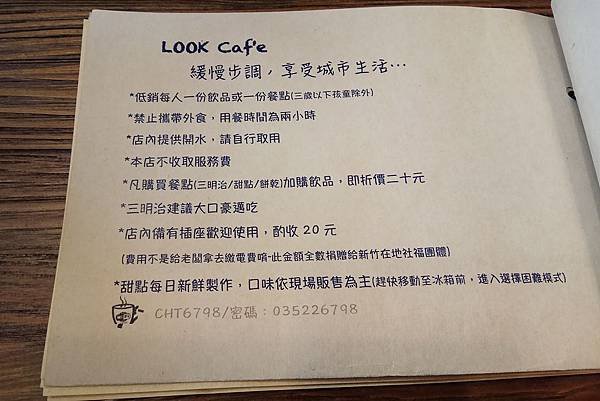 LOOK Caf'e
緩慢步調，享受城市生活…
*低銷每人一份飲品或一份餐點(三歲以下孩童除外)
*禁止攜帶外食，用餐時間為兩小時
*店內提供開水，請自行取用
*本店不收取服務費
*凡購買餐點(三明治/甜點/餅乾)加購飲品，即折價二十元
*三明治建議大口豪邁吃
*店內備有插座歡迎使用，酌收 20 元
(費用不是給老闆拿去繳電費唷~此金額全數捐贈給新竹在地社福團體)
*甜點每日新鮮製作，口味依現場販售為主(趕快移動至冰箱前，進入選擇困難模式)
CHT6798/密碼：035226798